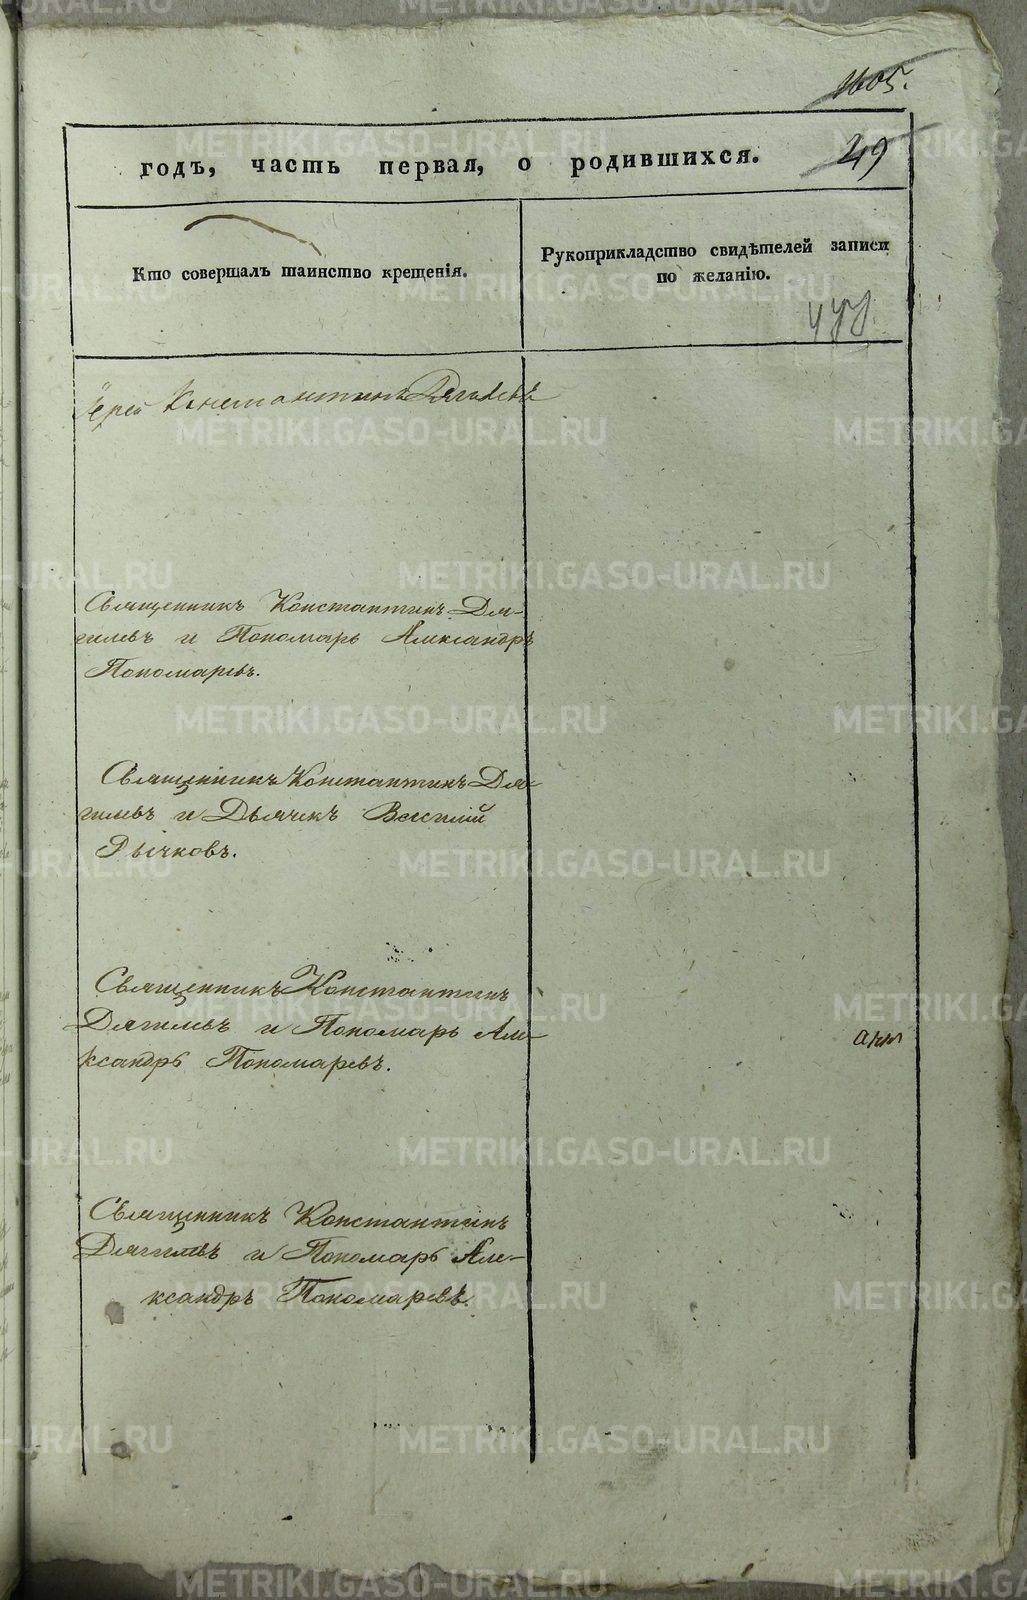 1605.
годъ, часть первая, о родившихся.
49
Кто совершалъ таинство крещенія.
Рукоприкладство свидѣтелей записи
по желанію.
Іерей Константинъ Дягилевъ
Священникъ Константинъ Дя-
гилевъ и Пономарь Александръ
Пономаревъ.
Священникъ Константинъ Дя-
гилевъ и Дьячекъ Василій
Рычковъ.
Священникъ Константинъ
Дягилевъ и Пономарь Але-
ксандръ Пономаревъ.
Священникъ Константинъ
Дягилевъ и Пономарь Але-
ксандръ Пономаревъ.
METRIKI.GASO-URAL.RU